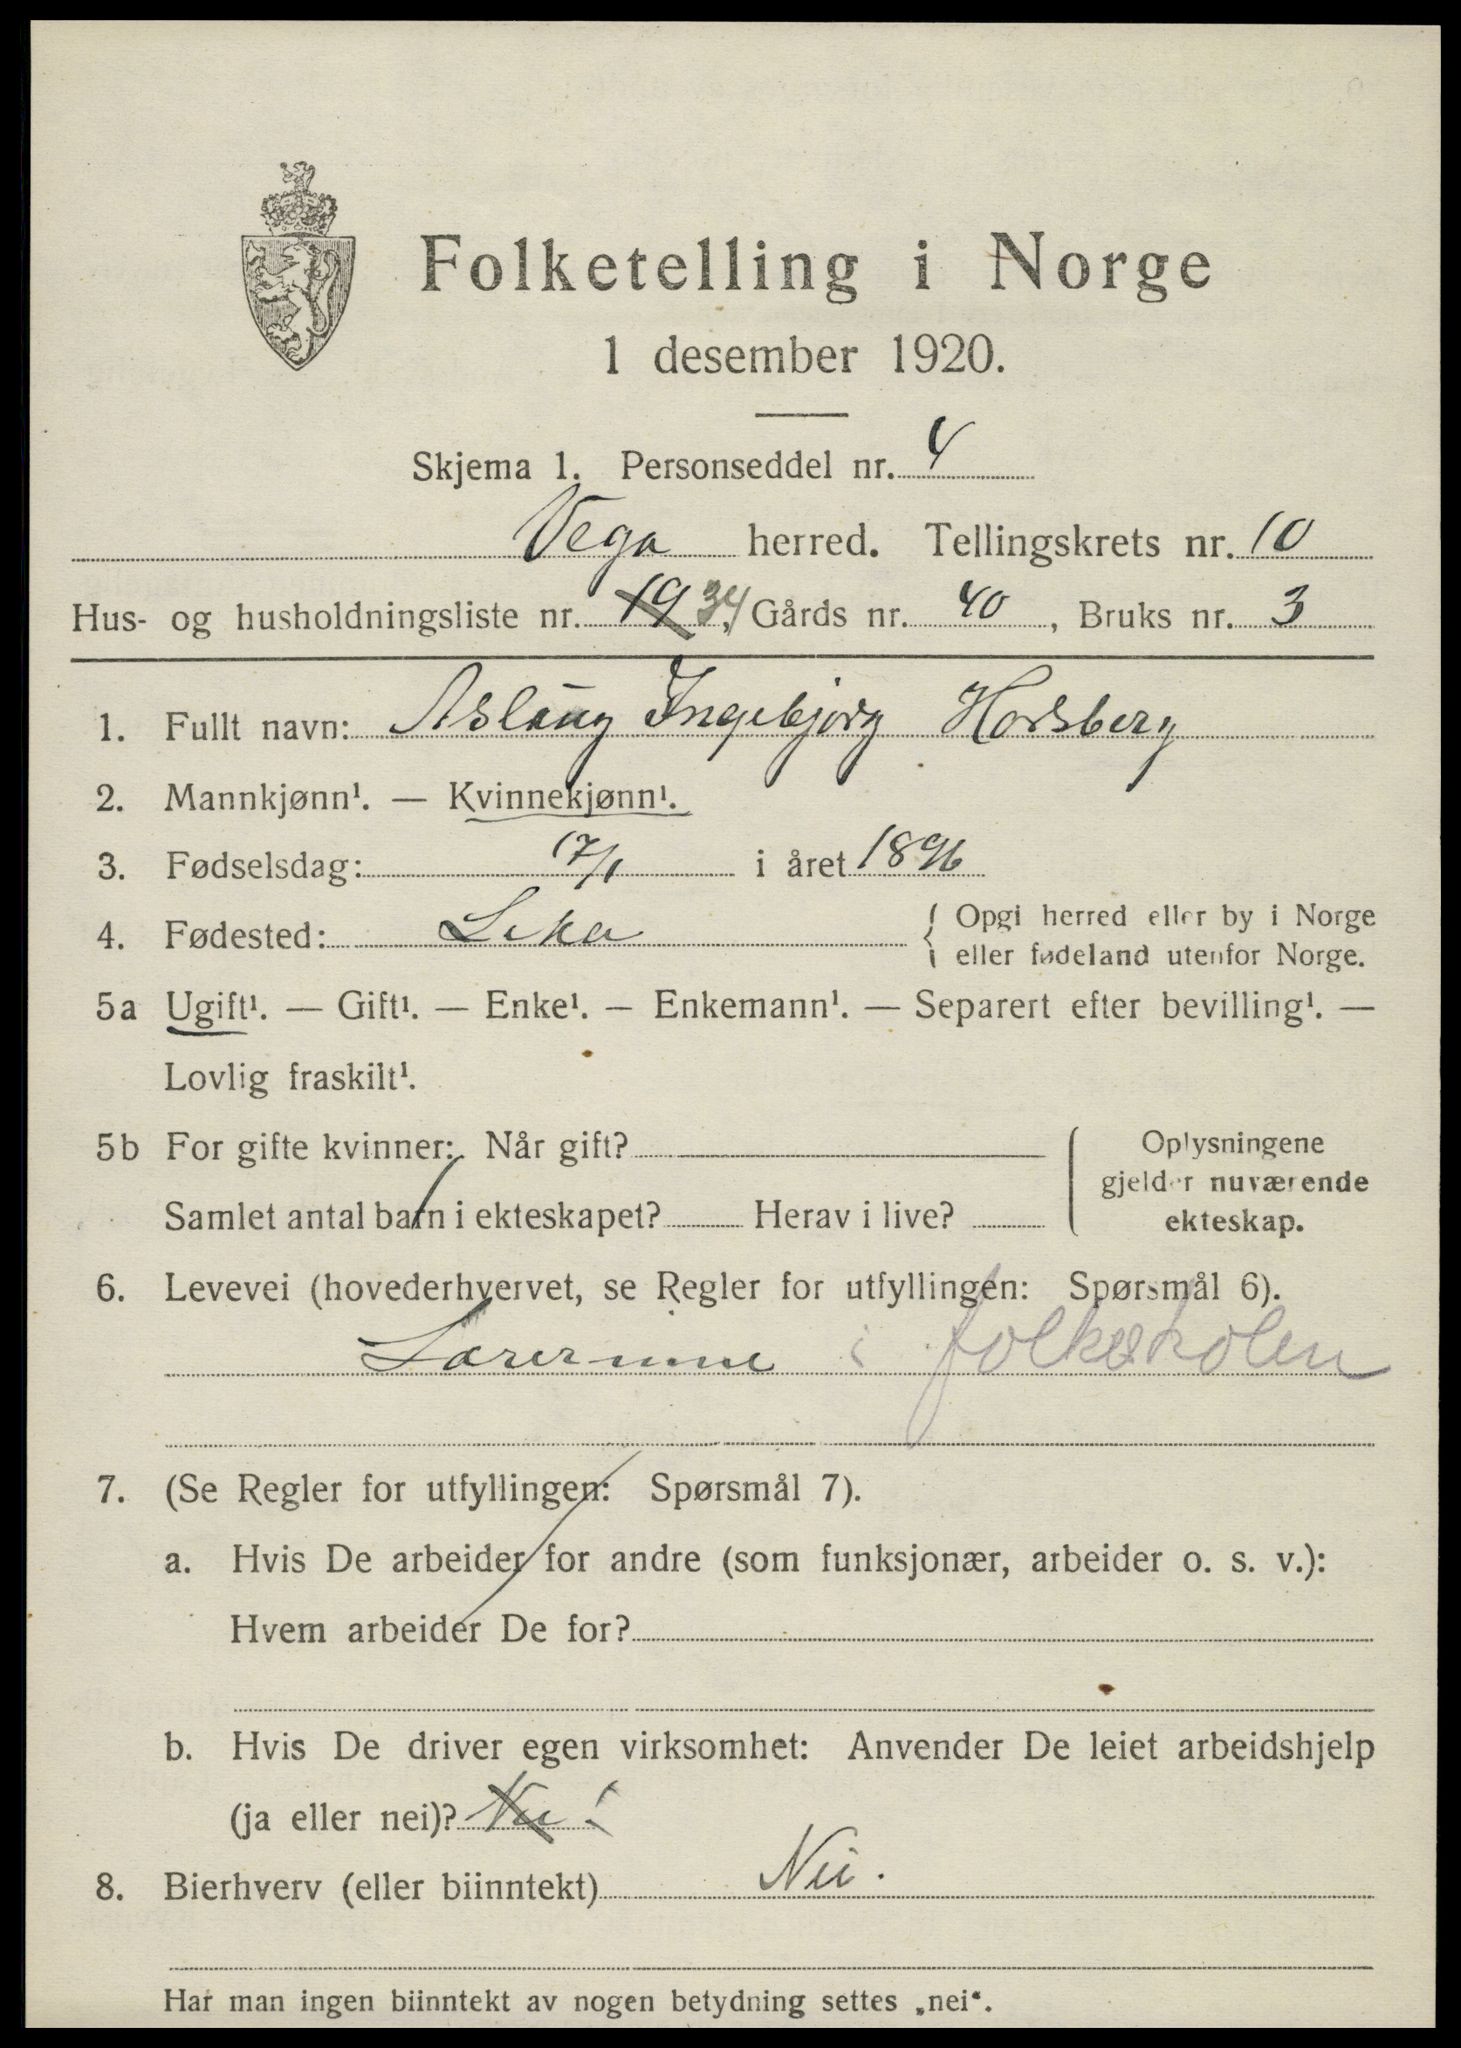 Folketelling i Norge
1 desember 1920.
Skjema 1. Personseddel nr. 4
Vega herred. Tellingskrets nr. 10
Hus- og husholdningsliste nr. 19 34, Gårds nr. 40, Bruks nr. 3
1. Fullt navn: Aslaug Ingebjørg Horsberg
2. Mannkjønn¹. — Kvinnekjønn¹.
3. Fødselsdag: 17/1 i året 1896
4. Fødested: Leka { Opgi herred eller by i Norge
eller fødeland utenfor Norge.
5a Ugift¹. — Gift¹. — Enke¹. — Enkemann¹. — Separert efter bevilling¹. —
Lovlig fraskilt¹.
5b For gifte kvinner: Når gift?
Samlet antal barn i ekteskapet? Herav i live?
Oplysningene
gjelder nuværende
ekteskap.
6. Levevei (hovederhvervet, se Regler for utfyllingen: Spørsmål 6).
Lærerinne i folkeskolen
7. (Se Regler for utfyllingen: Spørsmål 7).
a. Hvis De arbeider for andre (som funksjonær, arbeider o. s. v.):
Hvem arbeider De for?
b. Hvis De driver egen virksomhet: Anvender De leiet arbeidshjelp
(ja eller nei)? Nei!
8. Bierhverv (eller biinntekt) Nei.
Har man ingen biinntekt av nogen betydning settes „nei“.